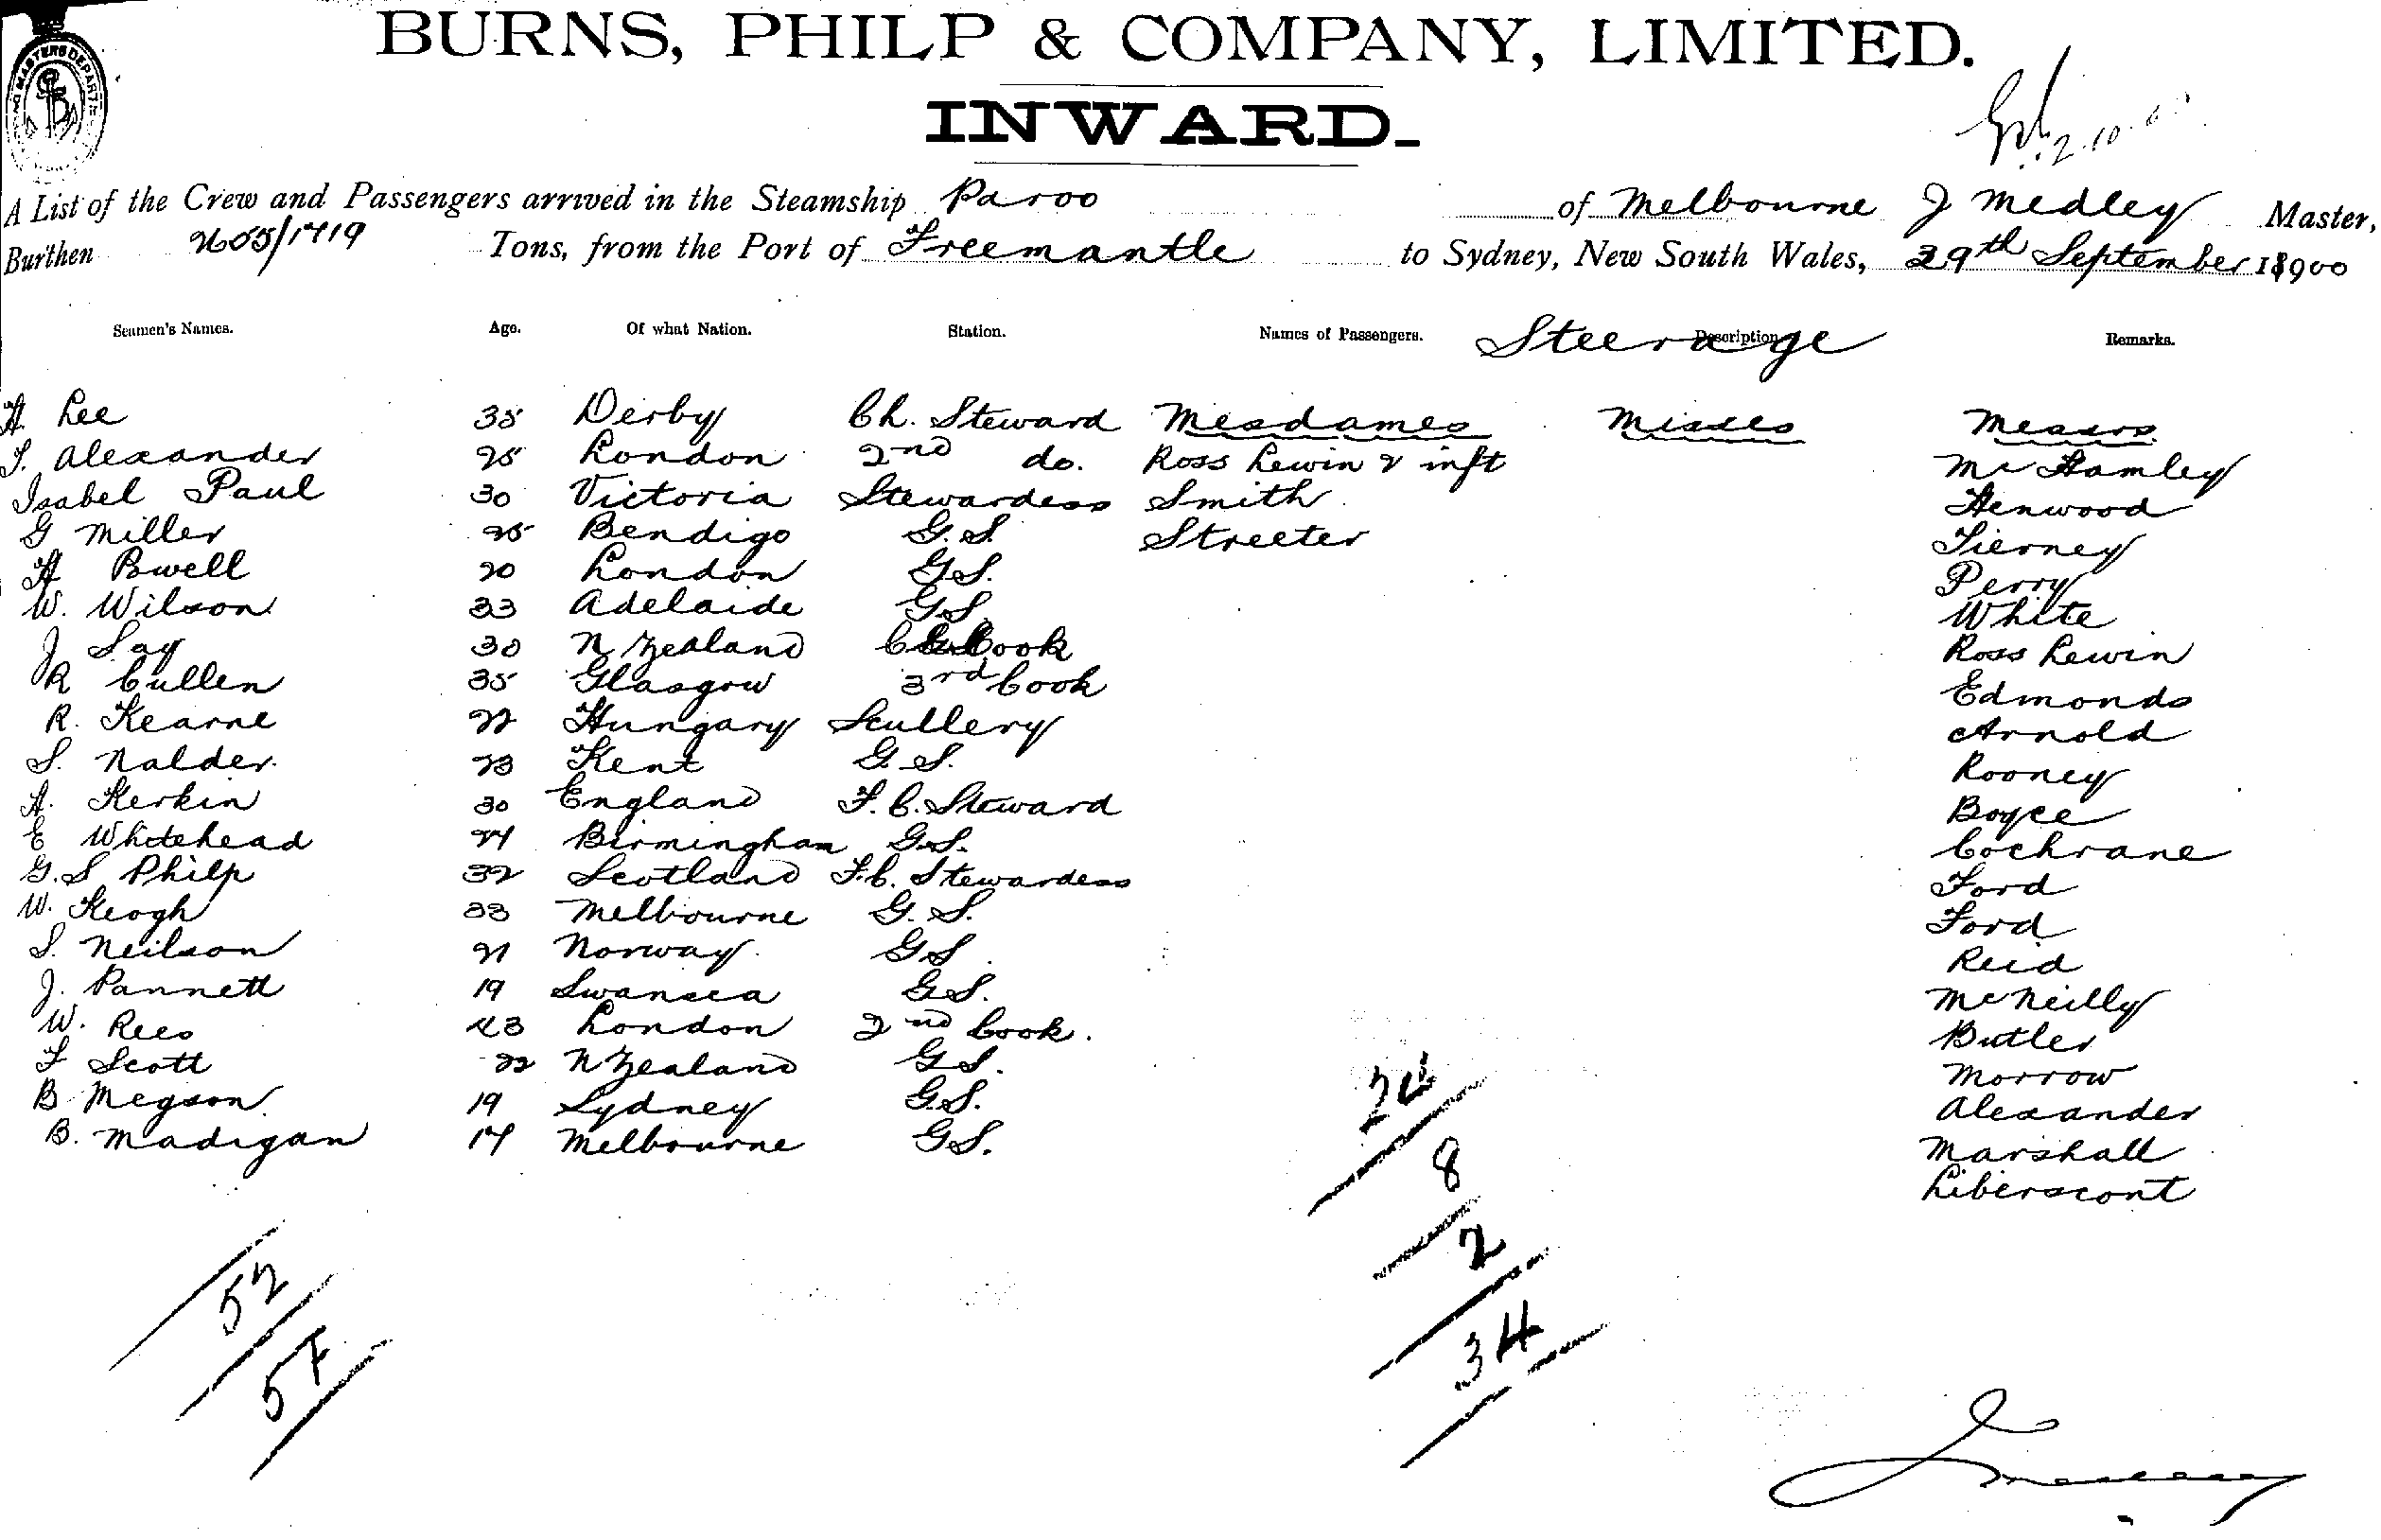 BURNS, PHILP & COMPANY, LIMITED.
INWARD.
A List of the Crew and Passengers arrived in the Steamship Paroo of Melbourne J Medley Master,
Burthen 2665/1719 Tons, from the Port of Freemantle to Sydney, New South Wales, 29th September 18900
Seamen's Names. Age. Of what Nation. Station. Names of Passengers. Steerage Description Remarks.
H. Lee 35 Derby Ch. Steward Mesdames Misses Messrs
S. Alexander 25 London 2nd do. Ross Lewin & inft Mc Hamley
Isabel Paul 30 Victoria Stewardess Smith Henwood
G Miller 25 Bendigo G.S. Streeter Tierney
H Powell 20 London G.S. Perry
W. Wilson 33 Adelaide G.S. White
J Say 30 N Zealand Cook Ross Lewin
R Cullen 35 Glasgow 3rd Cook Edmonds
R. Kearne 22 Hungary Scullery Arnold
S. Nalder 23 Kent G.S. Rooney
A. Kerkin 30 England F.C. Steward Boyce
E Whitehead 24 Birmingham G.S. Cochrane
G.S Philp 32 Scotland F.C. Stewardess Ford
W. Keogh 33 Melbourne G.S. Ford
S. Neilson 21 Norway G.S. Reid
J. Pannett 19 Swansea G.S. McNeilly
W. Rees 23 London 2nd Cook. Butler
F Scott 22 N Zealand G.S. Morrow
B Megson 19 Sydney G.S. Alexander
B. Madigan 17 Melbourne G.S. Marshall
Liberscont
52
57
24
8
2
34